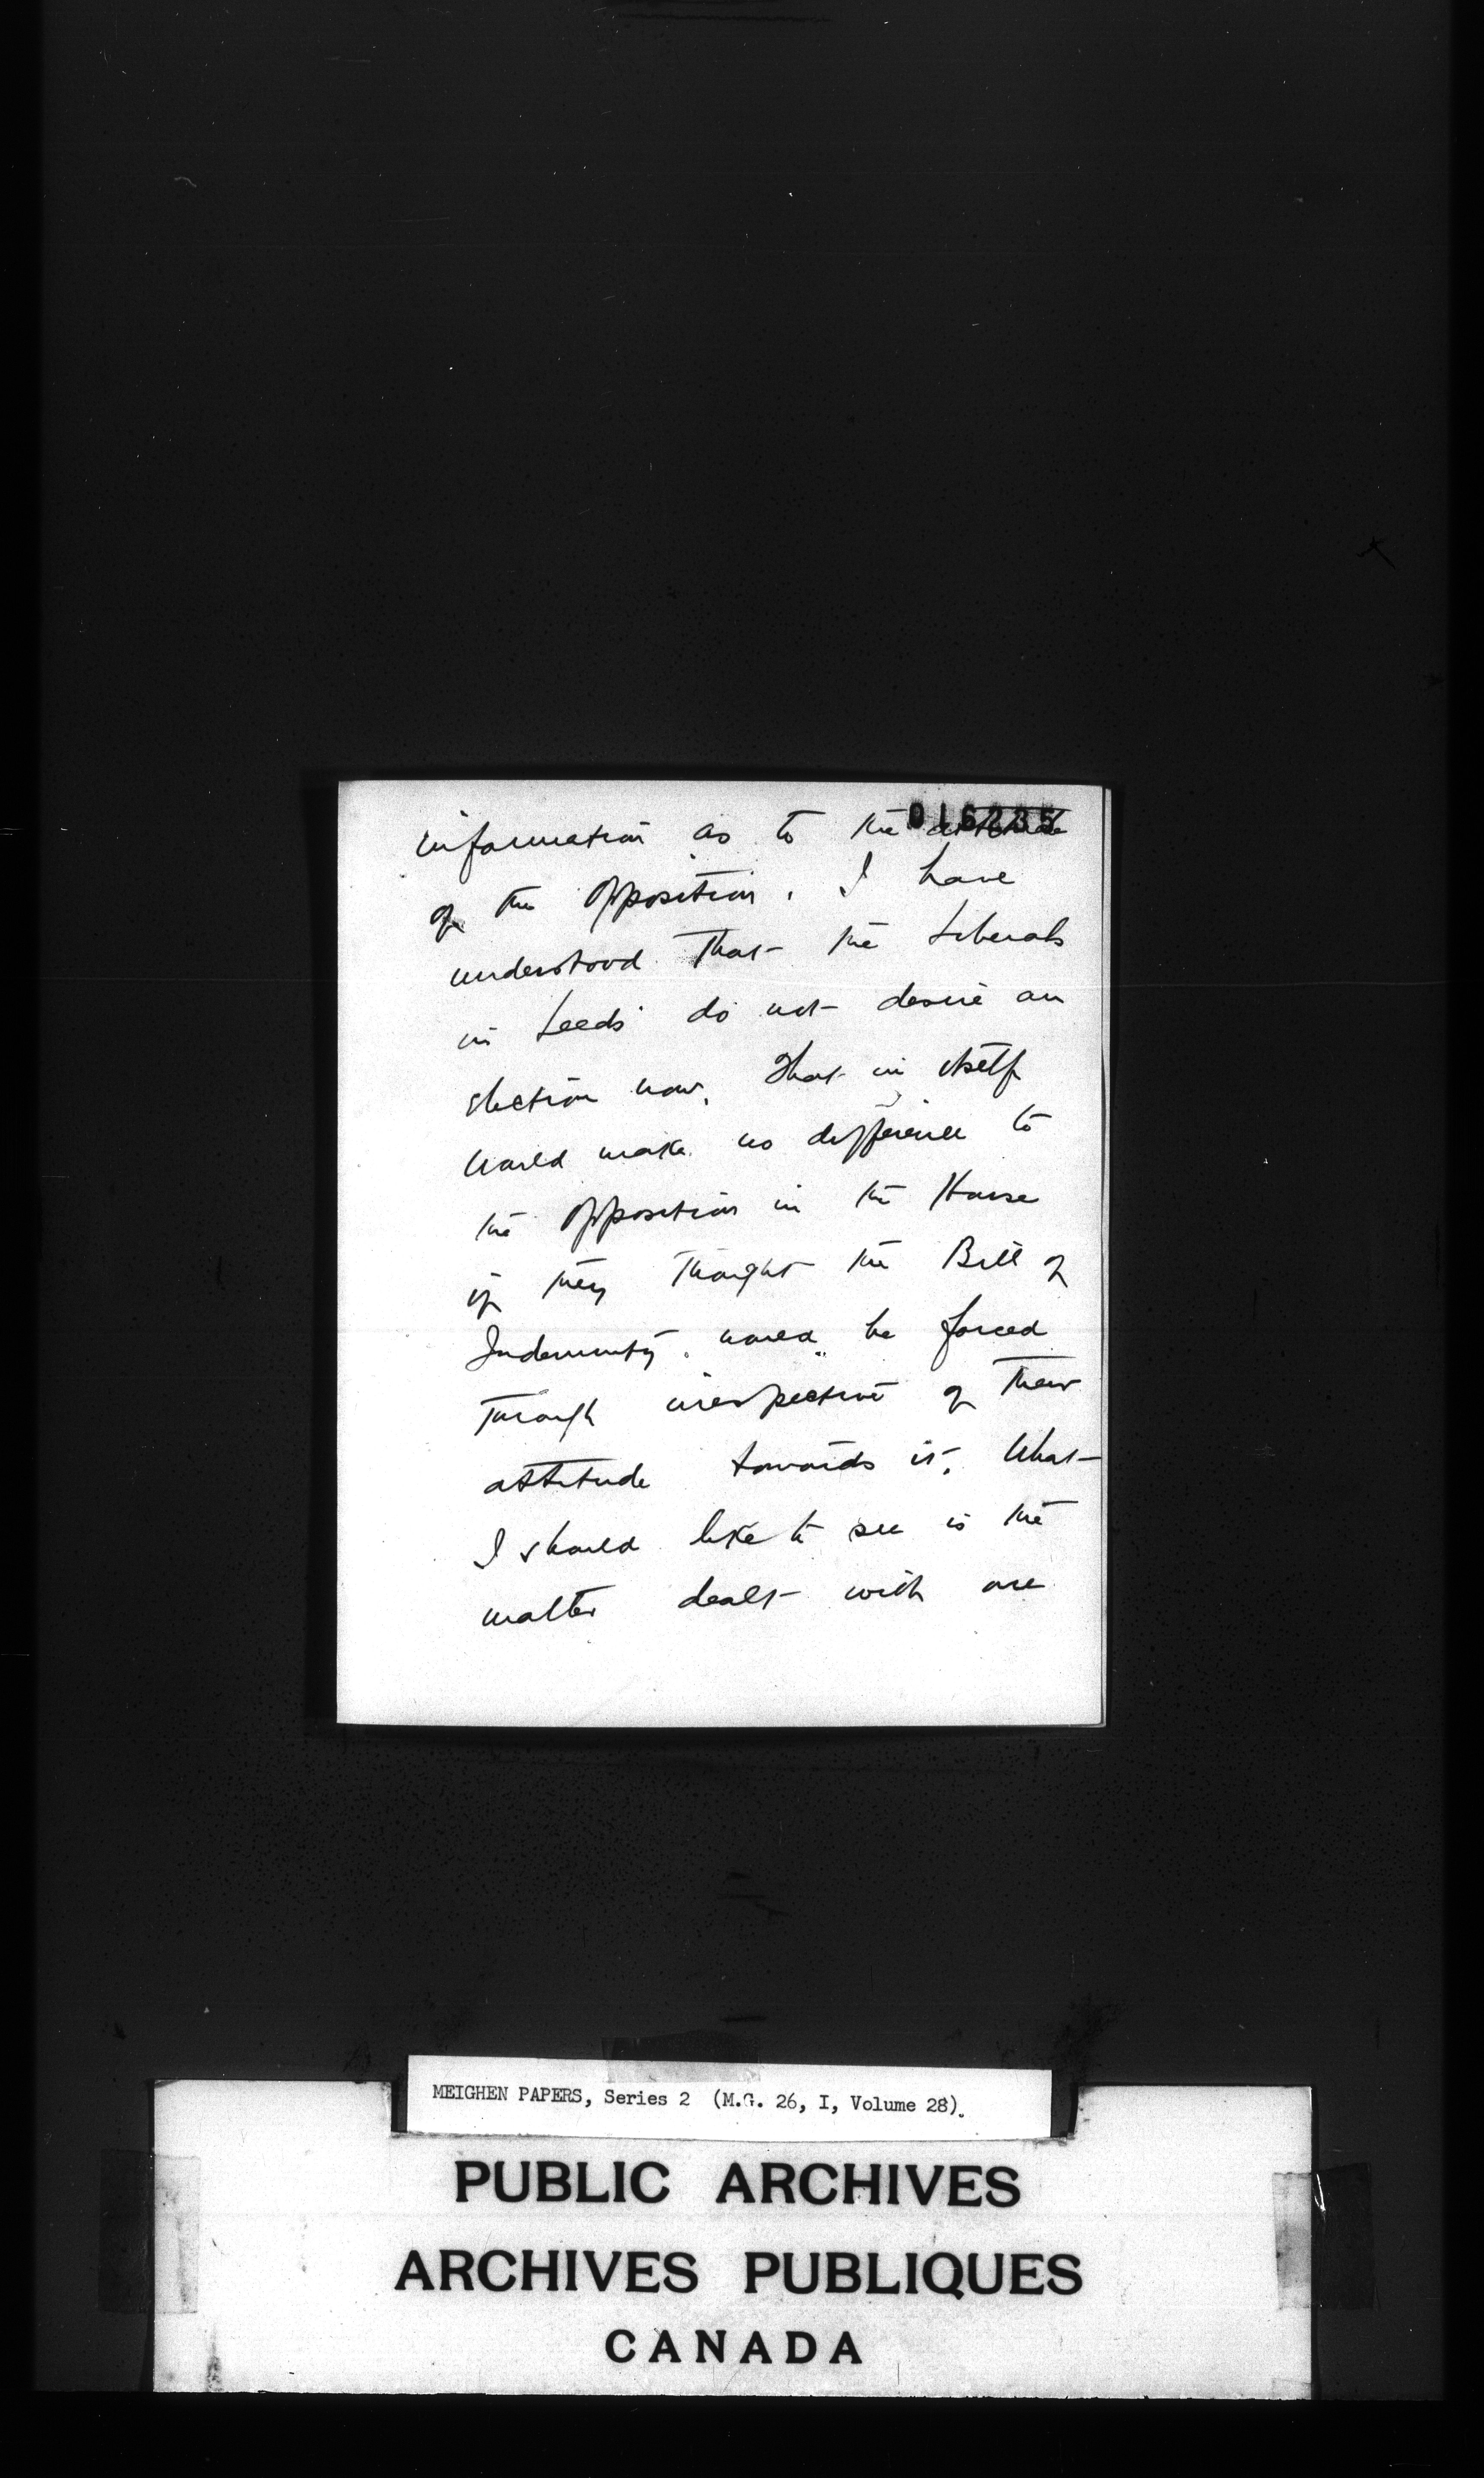 016235
information as to the attitude
of the Opposition. I have
understood that the Liberals
in Leeds do not desire an
election now. That in itself
would make no difference to
the Opposition in the House
if they thought the Bill of
Indemnity would be forced
through irrespective of their
attitude towards it. What
I should like to see is the
matter dealt with one
MEIGHEN PAPERS, Series 2 (M.G. 26, I, Volume 28).
PUBLIC ARCHIVES
ARCHIVES PUBLIQUES
CANADA